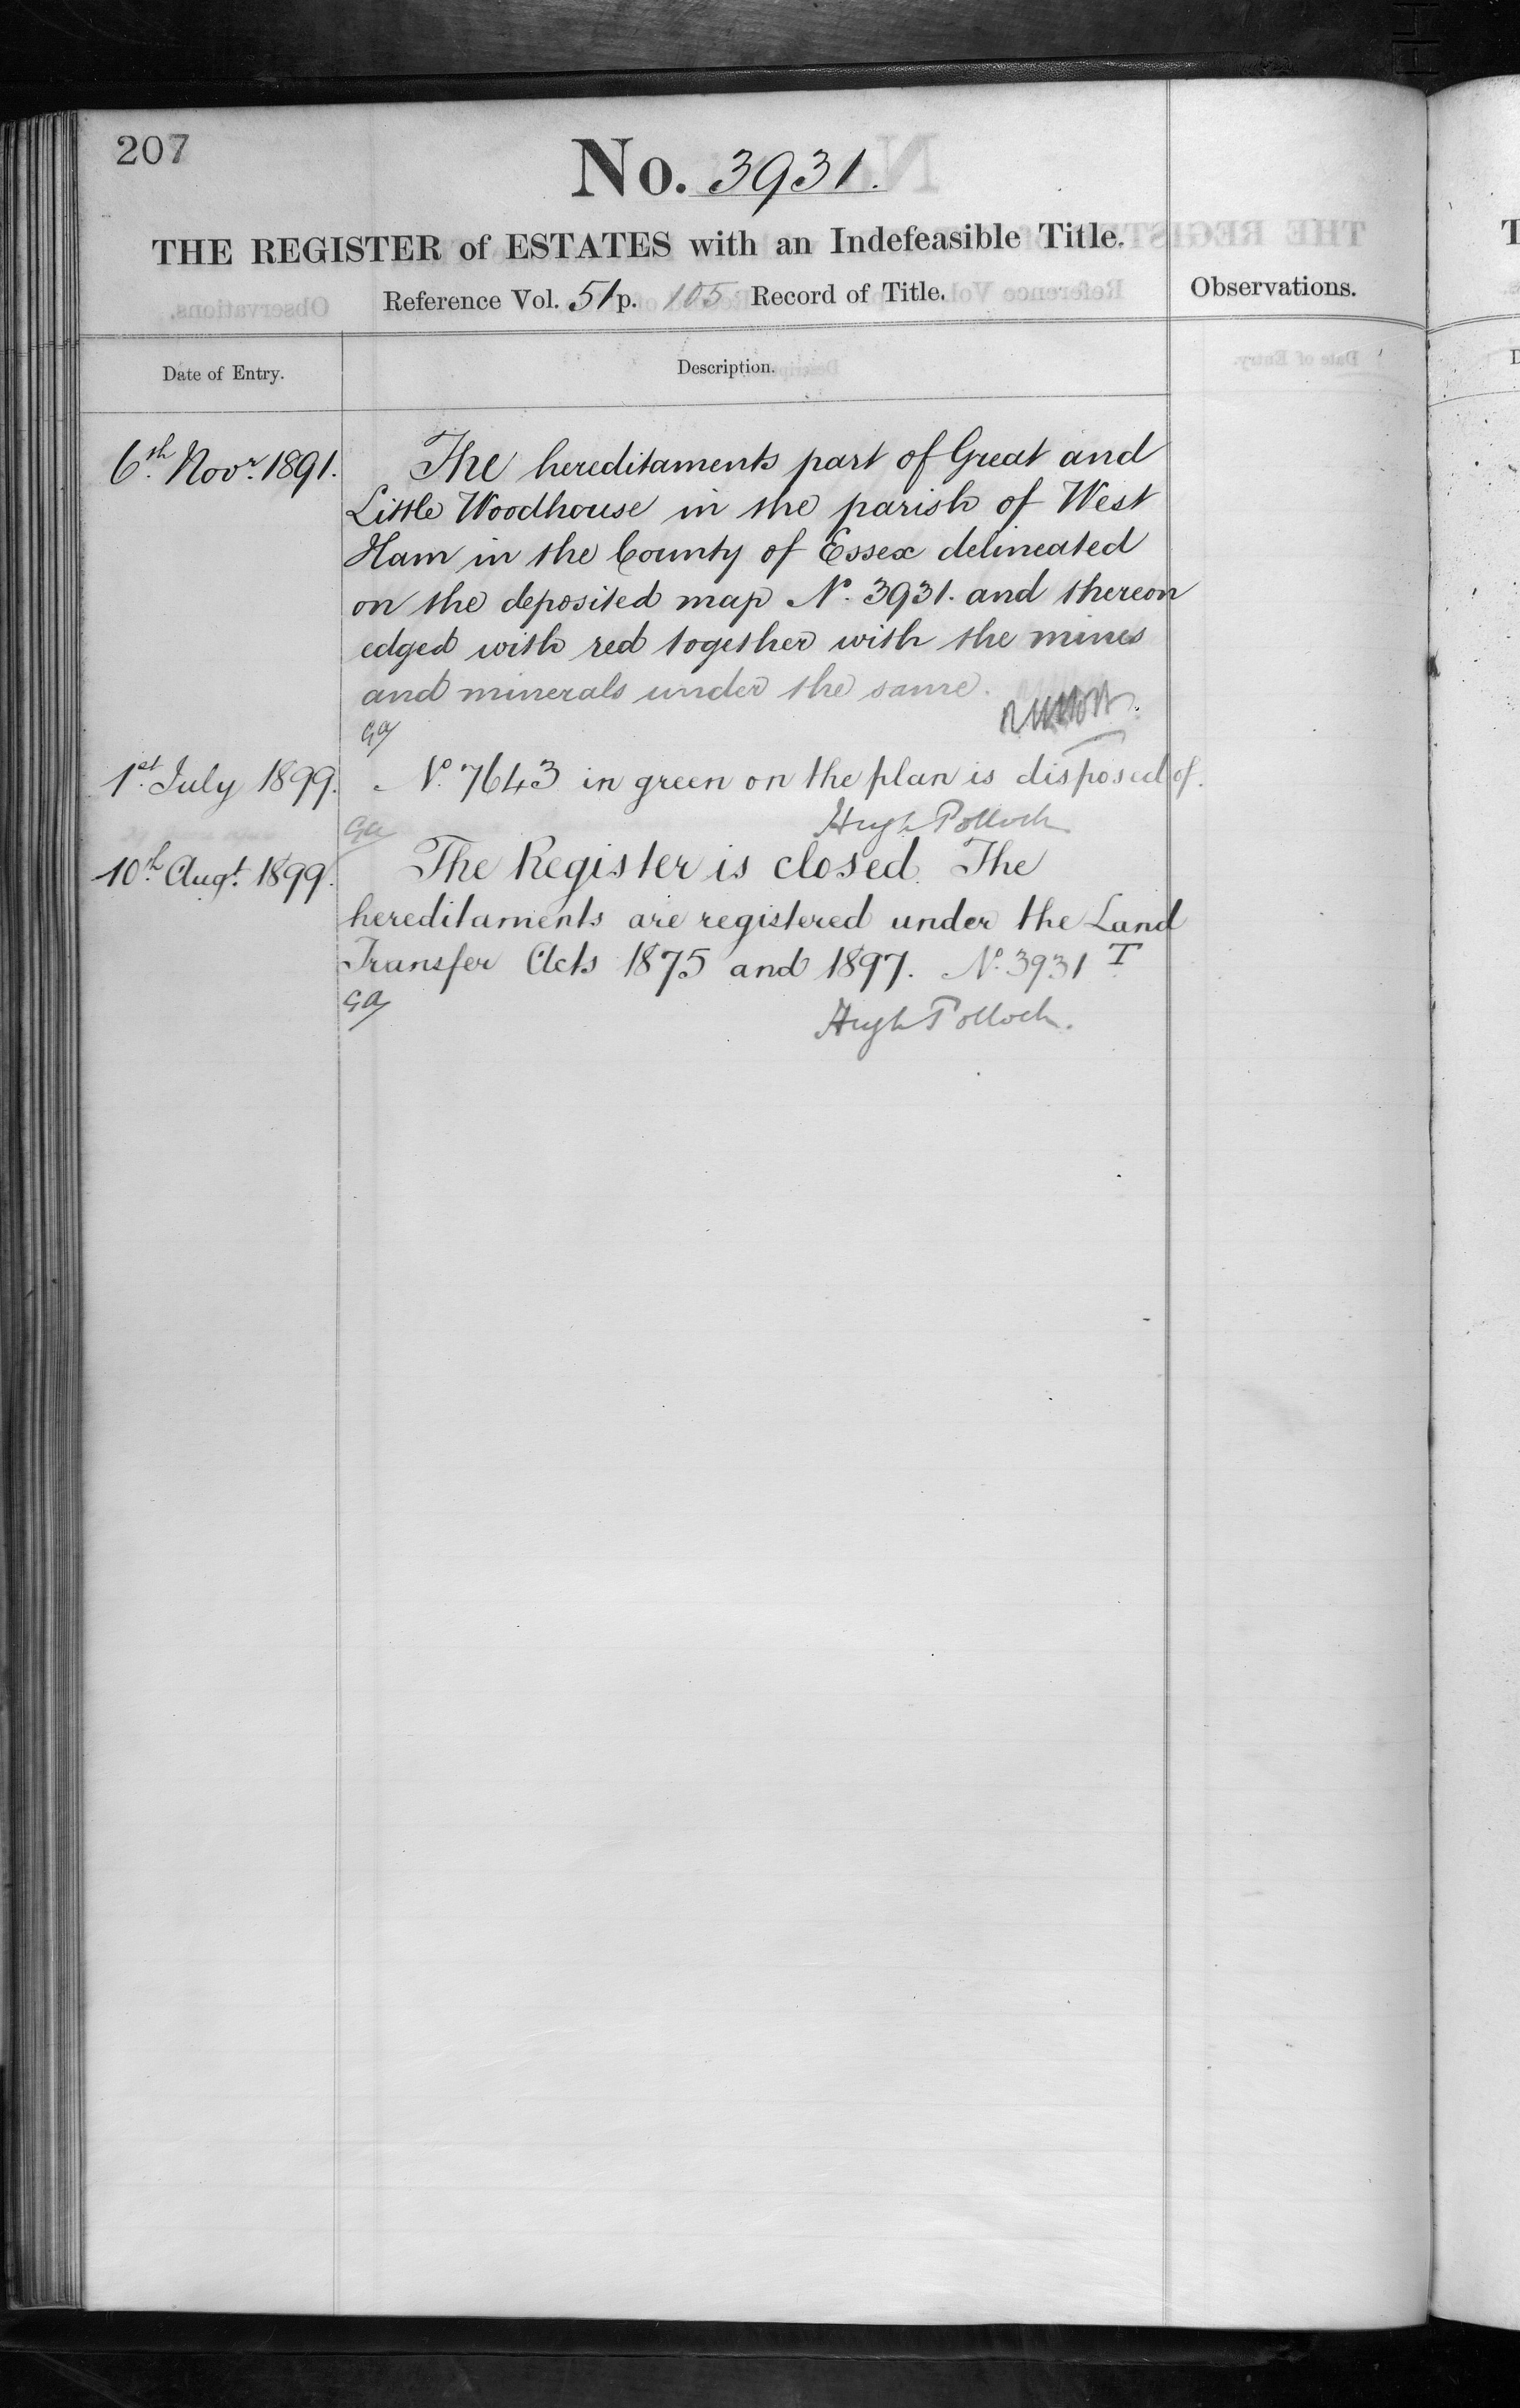 207
No. 3931.
THE REGISTER of ESTATES with an Indefeasible Title.
Reference Vol. 51 p. 105 Record of Title.
Observations.
Date of Entry.
Description.
6th Novr. 1891.
The hereditaments part of Great and
Little Woodhouse in the parish of West
Ham in the County of Essex delineated
on the deposited map No. 3931. and thereon
edged with red together with the mines
and minerals under the same.
GA
1st July 1899.
No. 7643 in green on the plan is disposed of.
GA
Hugh Pollock
10th Augt. 1899.
The Register is closed. The
hereditaments are registered under the Land
Transfer Acts 1875 and 1897. No. 3931 T
GA
Hugh Pollock.